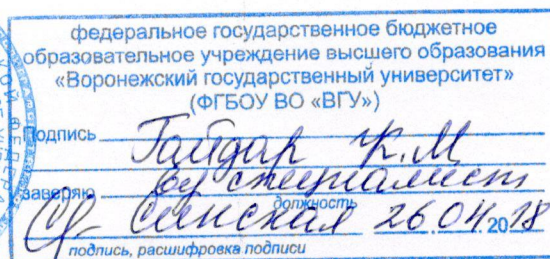 федеральное государственное бюджетное
образовательное учреждение высшего образования
«Воронежский государственный университет»
(ФГБОУ ВО «ВГУ»)
Подпись Гайдар К.М
заверяю вед специалист
должность
Синская 26.04.2018
подпись, расшифровка подписи